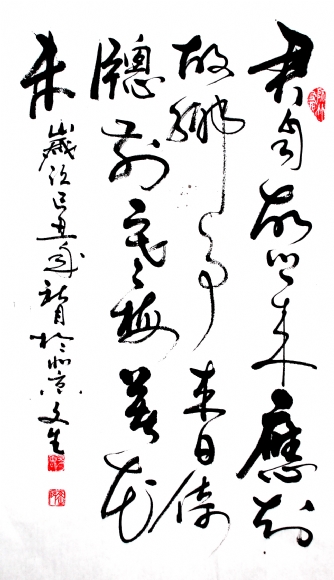 君自故鄉来應知
故鄉事来日綺
牕前寒梅著花
未
歲次己丑年於北京文生